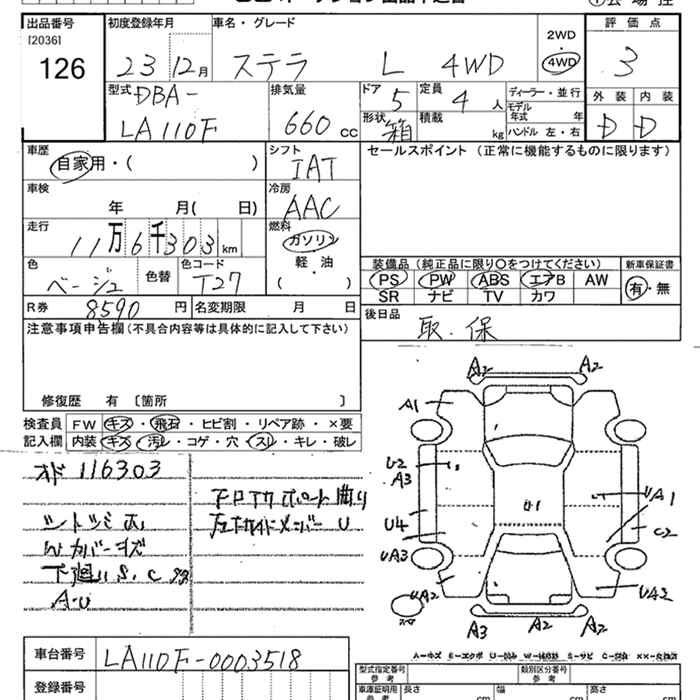 出品番号 初度登録年月 車名・グレード 評価点
[2036]
126
23 12月 ステラ L 4WD
2WD
・
4WD
3
型式 DBA-
LA110F
排気量 660 cc
ドア 5 定員 4 人
形状 箱 積載 kg
ディーラー・並行
モデル年式 年
ハンドル 左・右
外装 内装
D D
車歴 自家用・( )
シフト IAT
セールスポイント (正常に機能するものに限ります)
車検 年 月( 日)
冷房 AAC
走行 11万6千303 km
燃料 ガソリン
軽・油
( )
色 ベージュ 色替 色コード T27
R券 8590 円 名変期限 月 日
装備品 (純正品に限り○をつけてください) 新車保証書
PS PW ABS エアB AW 有・無
SR ナビ TV カワ
後日品 取.保
注意事項申告欄(不具合内容等は具体的に記入して下さい)
修復歴 有 〔箇所 〕
検査員記入欄 FW キズ・飛石・ヒビ割・リペア跡・×要
内装 キズ・汚レ・コゲ・穴・スレ・キレ・破レ
オド 116303
下廻り S.C
A-U
A2 A2
A1
U2
A3
U4
UA3
UA2
U1
UA1
C2
UA2
A3 A2 A2
車台番号 LA110F-0003518
登録番号
型式指定番号 参考 類別区分番号 参考
車庫証明用 参考 長さ cm 幅 cm 高さ cm